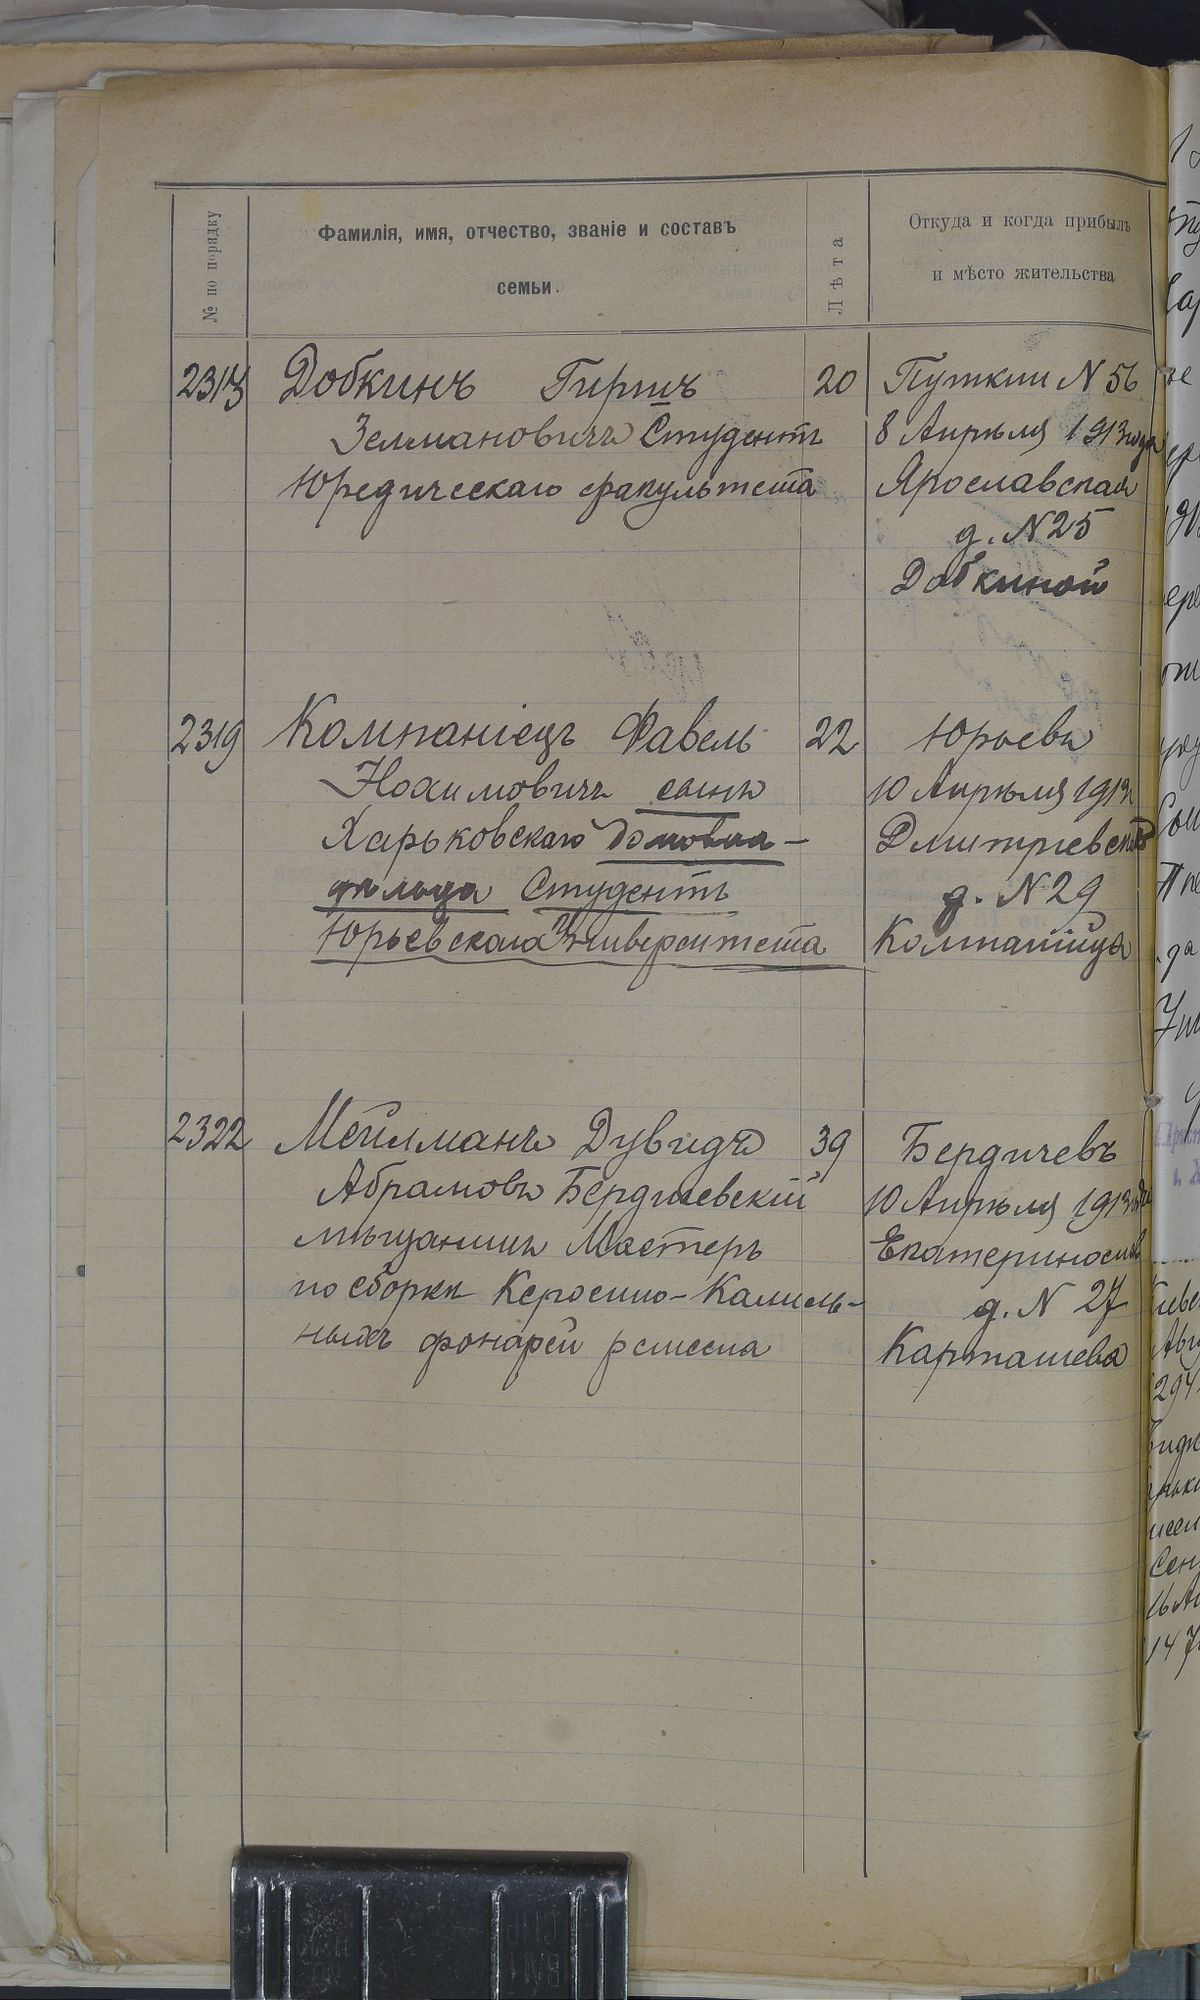 № по порядку
Фамилія, имя, отчество, званіе и составъ
семьи.
Лѣта
Откуда и когда прибылъ
и мѣсто жительства
Добкинъ Гиршъ 20 Пушкин N 56
Зелмановичъ Студентъ 8 Апрѣля 1913 года
Юредическаго факультета Ярославская
д. N 25
Добкиной
2319 Компаніецъ Фавель 22 Юрьевъ
Нохимовичъ сынъ 10 Апрѣля 1913
Харьковскаго домовла- Дмитриевск
дѣльца Студентъ д. N 29
Юрьевскаго Университета Компанійца
2322 Мейлманъ Дувидъ 39 Бердичевъ
Абрамовъ Бердичевскій 10 Апрѣля 1913 года
мѣщанинъ Мастеръ Екатеринослав
по сборкѣ Керосино-Калиль- д. N 27
ныхъ фонарей ремесла Карташева